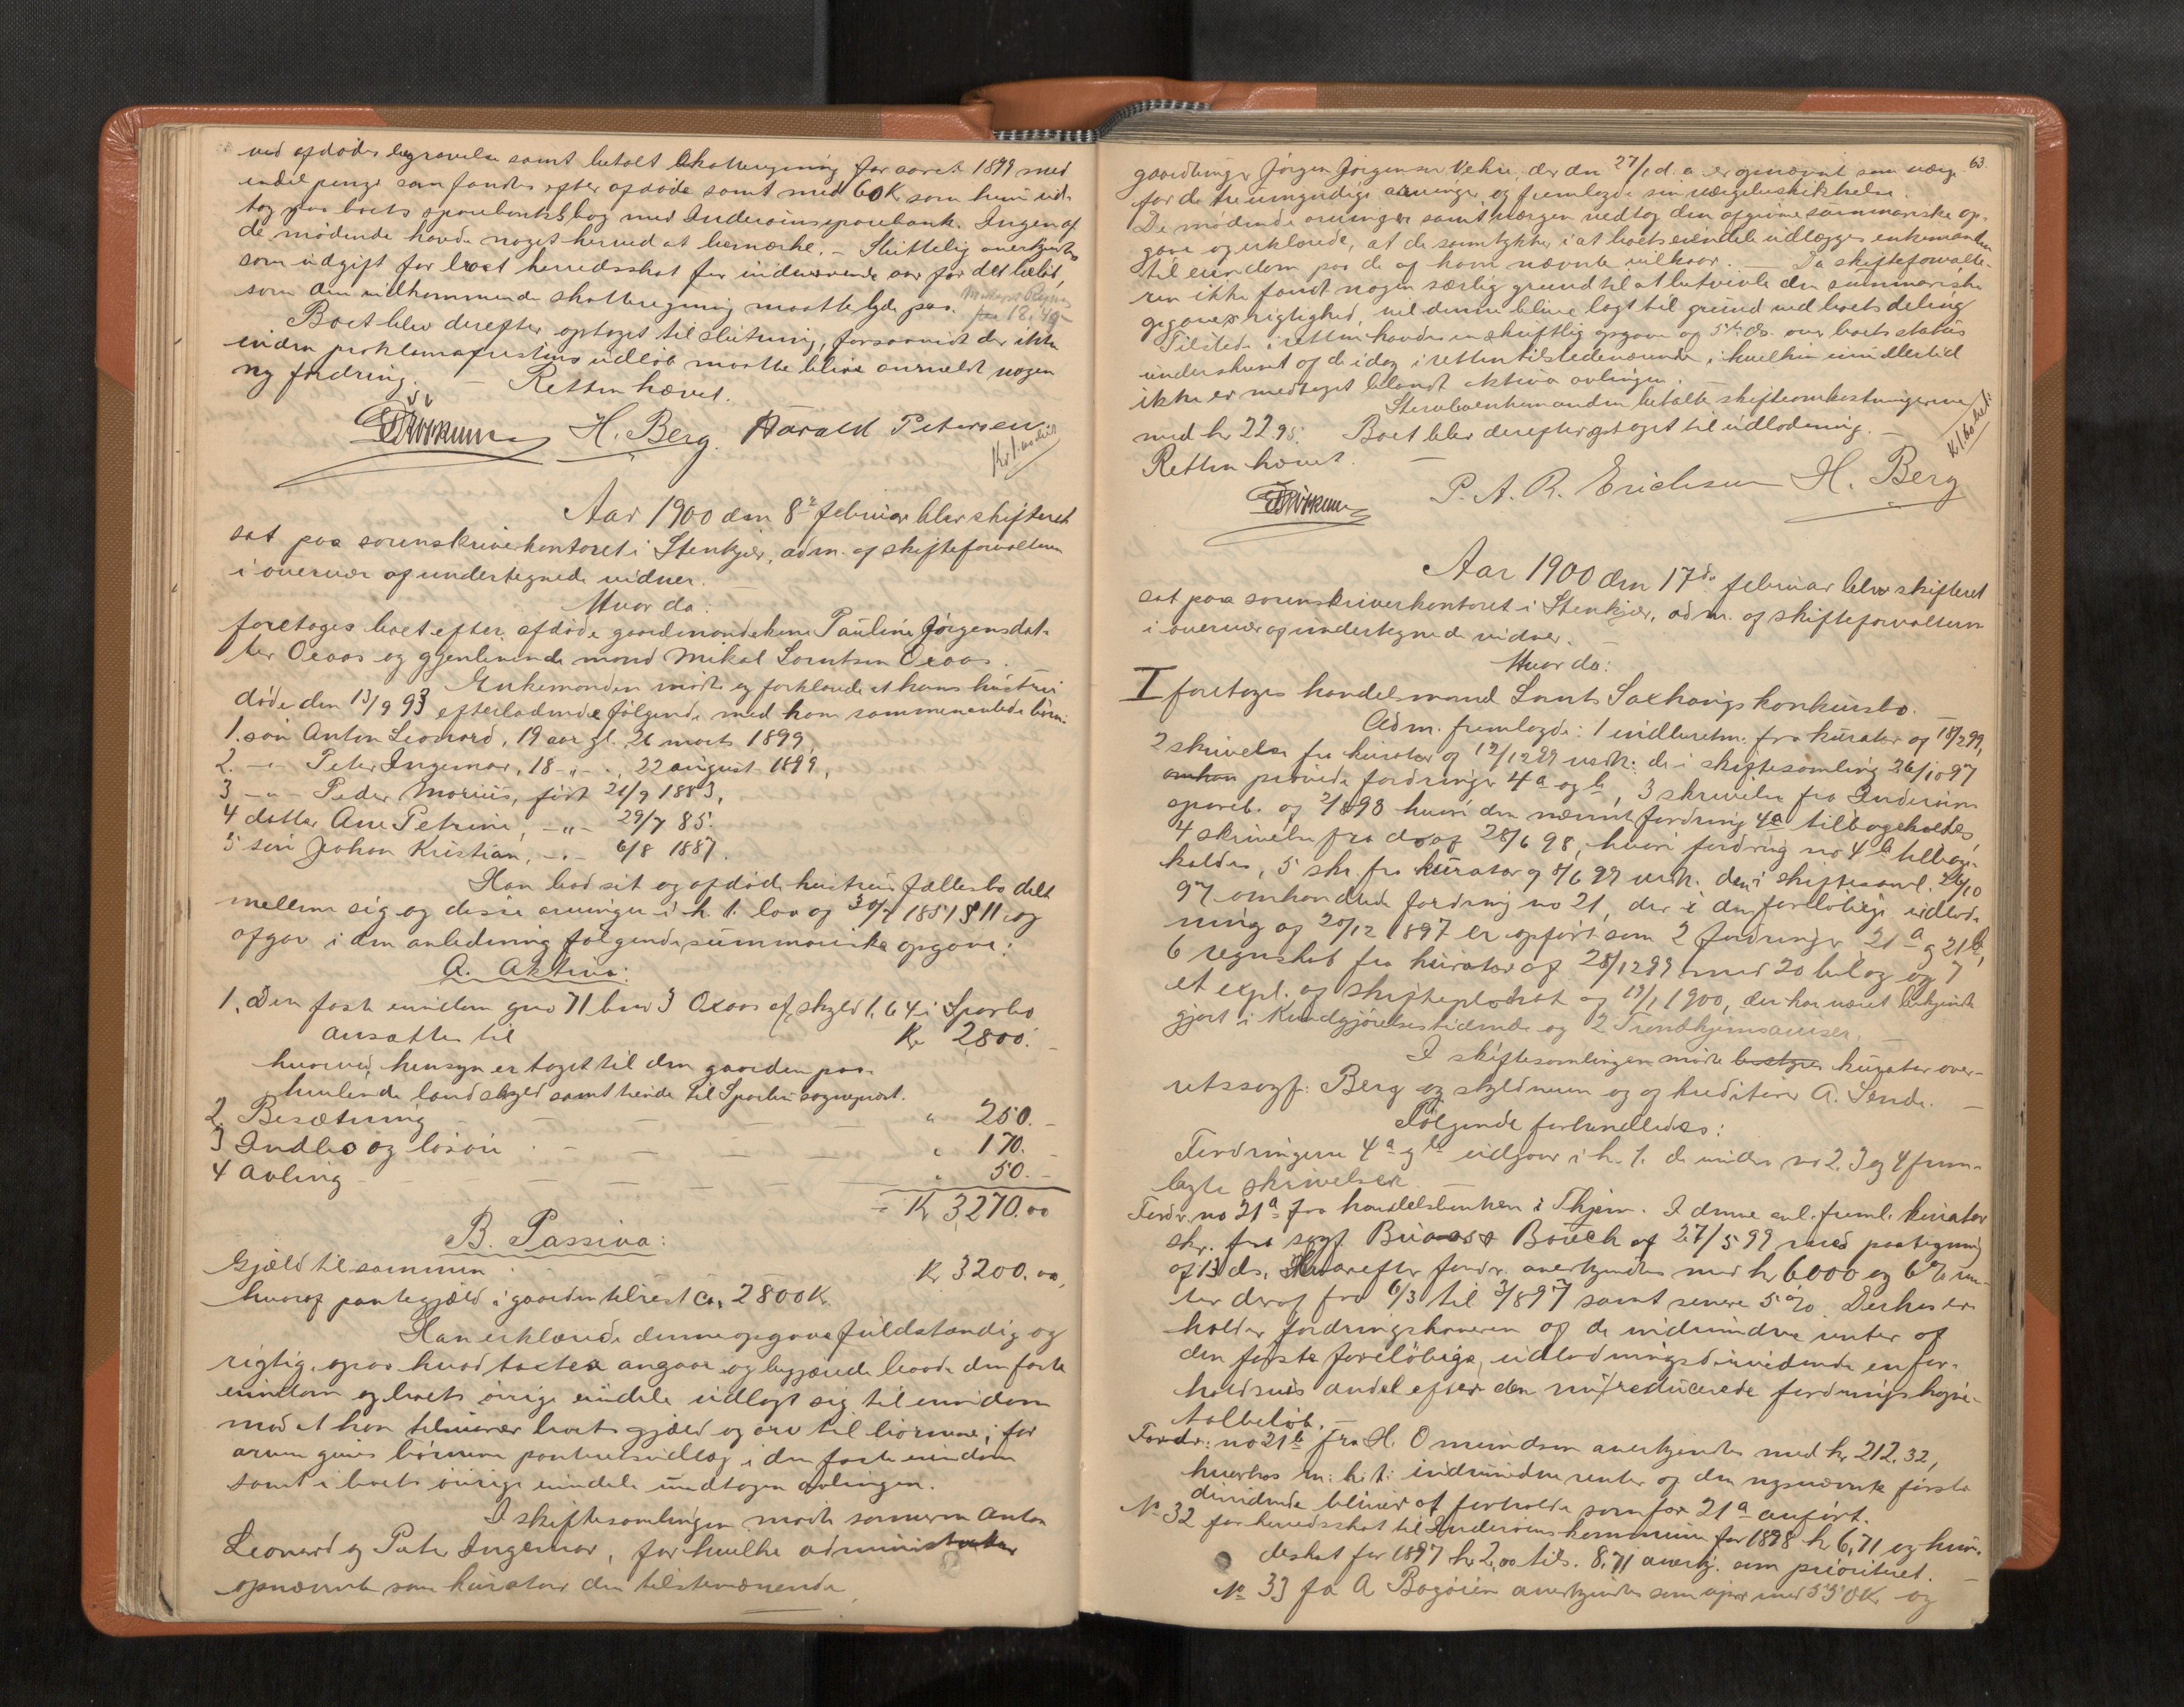 ved afdødes begravelse samt betalt skatteregning for aaret 1899 med
endel penge som fandtes efter afdøde samt med 60 K som hun ud-
tog paa boets sparebanksbog med Inderøens sparebank. Ingen af
de mødende havde noget herved at bemærke. – Sluttelig anerkjendtes
som udgift for boet herredsskat for indeværende aar for det beløb,
som den vedkommende skatteregning maatte lyde paa.
Boet blev derefter optaget til slutning, forsaavidt der ikke
inden proklamafristens udløb maatte blive anmeldt nogen
ny fordring. – Retten hævet.
H. Berg. Harald Petersen.
Aar 1900 den 8de februar blev skifteret
sat paa sorenskriverkontoret i Stenkjær, adm. af skifteforvalteren
i overvær af undertegnede vidner.
Hvor da:
foretages boet efter afdøde gaardmandskone Pauline Jørgensdat-
ter Oxaas og gjenlevende mand Mikal Lorntsen Oxaas.
Enkemanden mødte og forklarede at hans hustru
døde den 13/9 93 efterladende følgende med ham sammenavlede børn:
1. søn Anton Leonard, 19 aar gl. 26 marts 1899,
2. –"– Peter Ingemar, 18 –"– 22 august 1899,
3 –"– Peder Marius, født 21/9 1883,
4 datter Ane Petrine, –"– 29/7 85.
5 søn Johan Kristian, –"– 6/8 1887.
Han bad sit og afdøde hustrus fællesbo delt
mellem sig og disse arvinger i h. t. lov af 30/7 1851 § 11 og
afgav i den anledning følgende summariske opgave:
A. Aktiva:
1. Den faste eiendom gno 71 bno 3 Oxaas af skyld 1,64 i Sparbo
ansattes til Kr 2800.–
hvorved hensyn er taget til den gaarden paa-
hvilende landskyld samt tiende til Sparbu sogneprest.
2. Besætning " 250.–
3 Indbo og løsøre " 170.–
4 Avling " 50.–
= Kr 3270.00
B. Passiva:
Gjæld tilsammen Kr 3200.00,
hvoraf pantegjæld i gaarden tilrest ca. 2800 K.
Han erklærede denne opgave fuldstændig og
rigtig, ogsaa hvad taxter angaar og begjærede baade den faste
eiendom og boets øvrige eiendele udlagt sig til eiendom
mod at han tilsvarer boets gjæld og arv til børnene; for
arven gives børnene panteretsudlæg i den faste eiendom
samt i boets øvrige eiendele undtagen avlingen.
I skiftesamlingen mødte sønnerne Anton
Leonard og Peter Ingemar, for hvilke administrator
opnævnte som kurator den tilstedeværende
63.
gaardbruger Jørgen Jørgensen Vehre, der den 27/1 d. a. er opnævnt som værge
for de tre umyndige arvinger og fremlagde sin værgebeskikkelse.
De mødende arvinger samt værgen vedtog den afgivne summariske op-
gave og erklærede, at de samtykker i at boets eiendele udlægges enkemanden
til eiendom paa de af ham nævnte vilkaar. Da skifteforvalte-
ren ikke fandt nogen særlig grund til at betvivle den summariske
opgaves rigtighed, vil denne blive lagt til grund ved boets deling
Tilstede i retten havdes en skriftlig opgave af 5te ds. over boets status
underskrevet af de idag i retten tilstedeværende, i hvilken imidlertid
ikke er medtaget blandt aktiva avlingen.
Stervboenkemanden betalte skifteomkostningerne
med kr 22.95. Boet blev derefter optaget til udlodning. –
Retten hævet. –
P. A. R. Erichsen H. Berg
Aar 1900 den 17de februar blev skifteret
sat paa sorenskriverkontoret i Stenkjær, adm. af skifteforvalteren
i overvær af undertegnede vidner.
Hvor da:
I foretages handelsmand Lornts Saxhaugs konkursbo.
Adm. fremlagde: 1 indberetn. fra kurator af 18/2 99,
2 skrivelse fra kurator af 19/12 99 vedk. de i skiftesamling 26/10 97
prøvede fordringer 4a og b, 3 skrivelse fra Inderøens
spareb. af 2/8 98 hvori den nævnte fordring 4a tilbagekaldes,
4 skrivelse fra do af 28/6 98, hvori fordring no 4b tilbage-
kaldes, 5 skr. fra kurator af 8/6 99 vedk. den i skiftesaml. 26/10
97 omhandlede fordring no 21, der i den foreløbige udlod-
ning af 20/12 1897 er opført som 2 fordringer 21a og 21b,
6 regnskab fra kurator af 28/12 99 med 20 bilag og 7
et expl. af skifteplakat af 19/1 1900, der har været bekjendt-
gjort i Kundgjørelsestidende og 2 Trondhjemsaviser.
I skiftesamlingen mødte kurator over-
retssagf. Berg og skyldneren og af kreditorer A. Sende. –
Følgende forhandledes:
Fordringerne 4a og b udgaar i h. t. de under no 2, 3 og 4 frem-
lagte skrivelser.
Fordr. no 21a fra handelsbanken i Thjem. I denne anl. freml. kurator
skr. fra sagf. Bouch af 27/5 99 med paategning
af 13 ds. Hvorefter fordr. anerkjendtes med kr 6000 og 6% ren-
ter deraf fra 6/3 til 3/8 97 samt senere 5%. Derhos er-
holder fordringshaveren af de inddrevne renter af
den første foreløbige udlodningsdividende en for-
holdsvis andel efter den nu reducerede fordrings kapi-
talbeløb. –
Fordr. no 21b fra H. Omundsen anerkjendtes med kr 212.32,
hvorhos m. h. t. inddrevne renter og den nysnævnte første
dividende bliver at forholde som for 21a anført.
No 32 for herredsskat til Inderøens kommune for 1898 kr 6,71 og hun-
deskat for 1897 kr 2,00 tils. 8,71 anerkj. som prioriteret.
No 33 fra A Bagøien anerkjendtes som upr med 550 K og